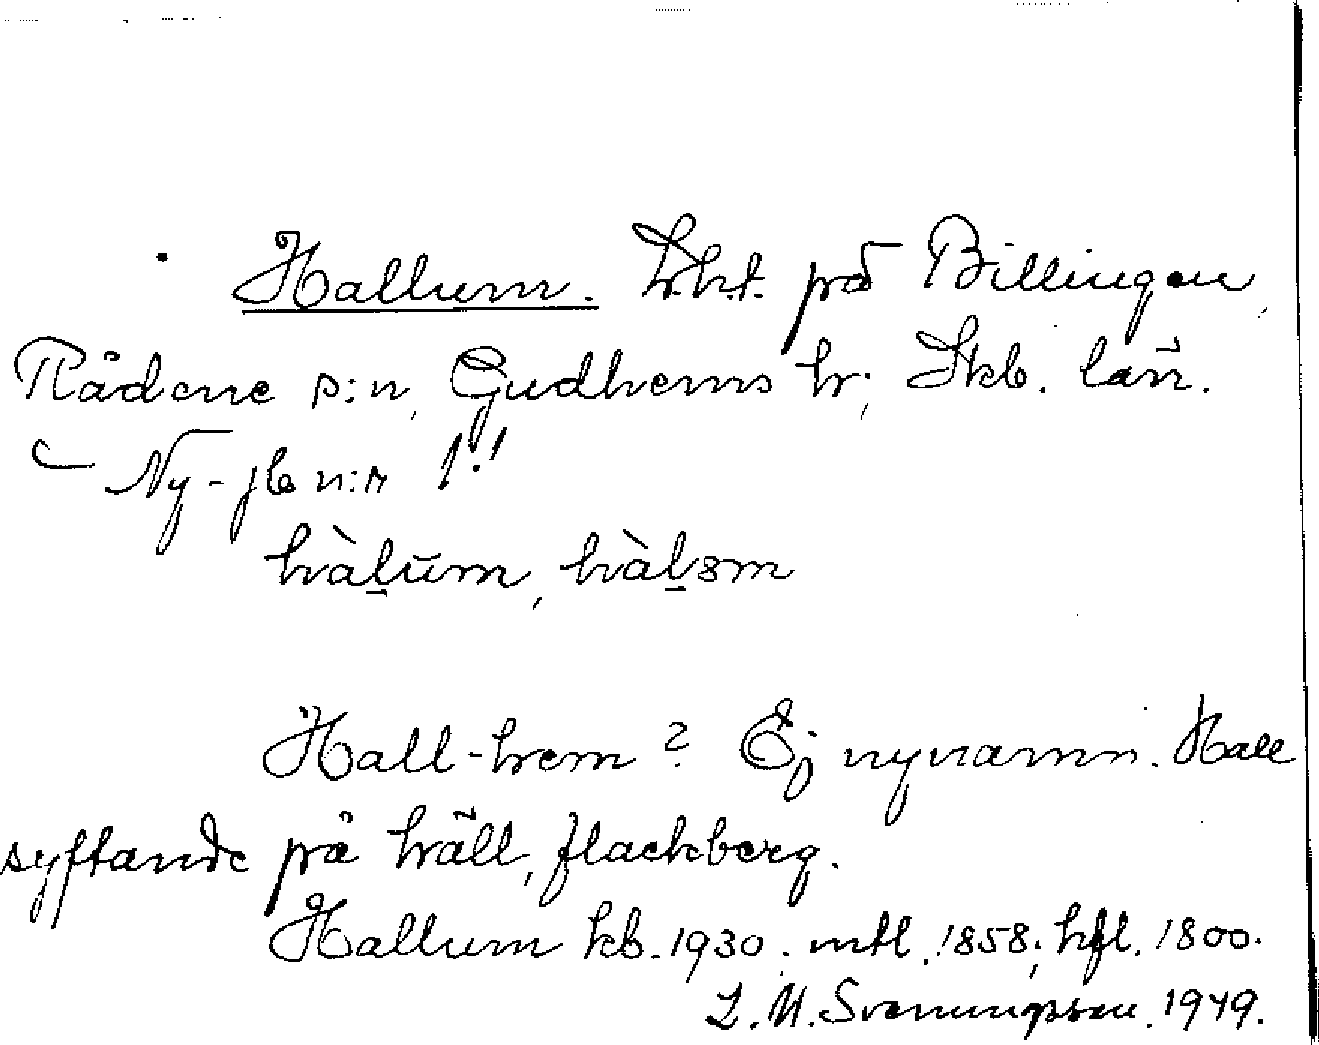 Hallum. Lht. på Billingen,
Rådene s:n, Gudhems hr; Skb. län.
Ny-jb n:r 1!
hàl̠ūm, hàl̠əm
Hall-hem? Ej nynamn. Hall
syftande på häll, flackberg.
Hallum kb. 1930. mtl. 1858; hfl. 1800.
L.M. Svenungsson. 1949.